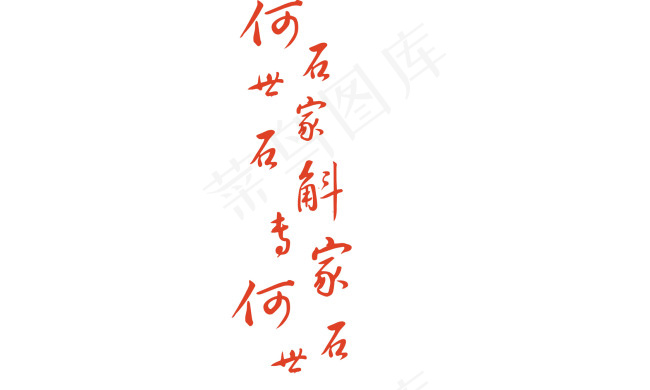 石家斛家石
何世石专何世
菜鸟图库